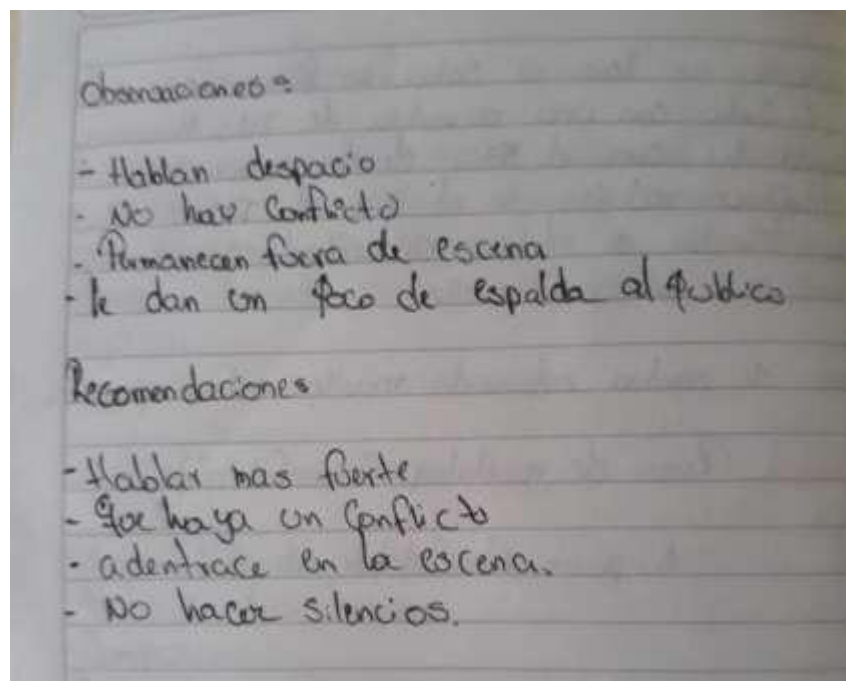 Observaciones:
- Hablan despacio
- No hay Conflicto
- Permanecen fuera de escena
- le dan un poco de espalda al publico
Recomendaciones
- Hablar mas fuerte
- Que haya un Conflicto
- adentrace en la escena.
- No hacer silencios.